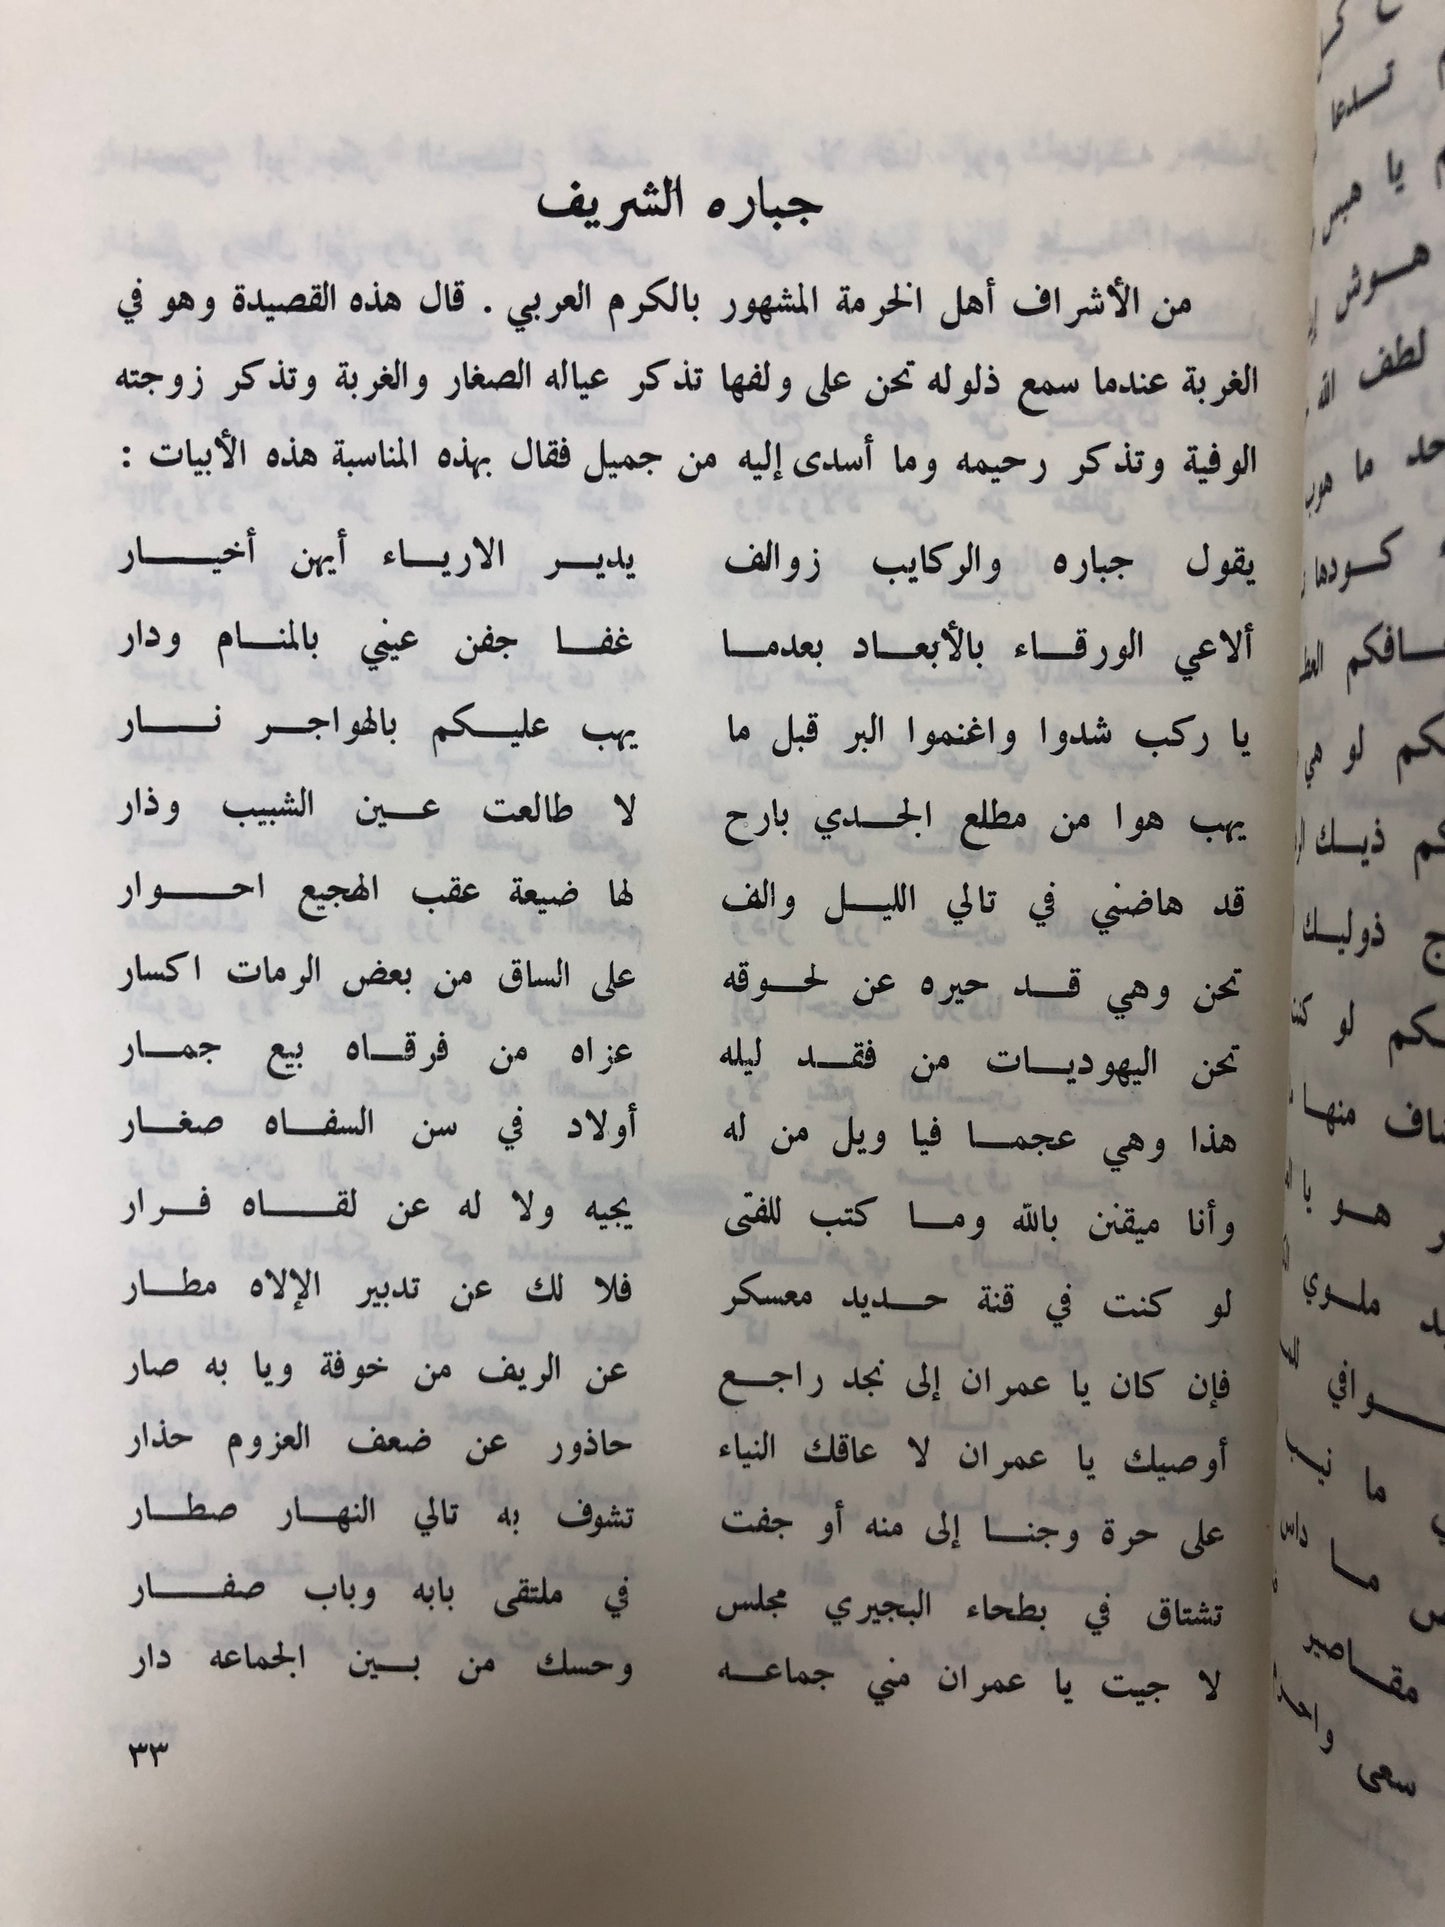 جباره الشريف
من الأشراف أهل الخرمة المشهور بالكرم العربي . قال هذه القصيدة وهو في
الغربة عندما سمع ذلوله تحن على ولفها تذكر عياله الصغار والغربة وتذكر زوجته
الوفية وتذكر رحيمه وما أسدى إليه من جميل فقال بهذه المناسبة هذه الأبيات :
يقول جباره والركايب زوالف يدير الارياء أيهن أخيار
ألاعي الورقاء بالأبعاد بعدما غفا جفن عيني بالمنام ودار
يا ركب شدوا واغنموا البر قبل ما يهب عليكم بالهواجر نار
يهب هوا من مطلع الجدي بارح لا طالعت عين الشبيب وذار
قد هاضني في تالي الليل والف لها ضيعة عقب الهجيع احوار
تحن وهي قد حيره عن لحوقه على الساق من بعض الرمات اكسار
تحن اليهوديات من فقد ليله عزاه من فرقاه بيع جمار
هذا وهي عجما فيا ويل من له أولاد في سن السفاه صغار
وأنا ميقنن بالله وما كتب للفتى يجيه ولا له عن لقاه فرار
لو كنت في قنة حديد معسكر فلا لك عن تدبير الإلاه مطار
فإن كان يا عمران إلى نجد راجع عن الريف من خوفة ويا به صار
أوصيك يا عمران لا عاقك النياء حاذور عن ضعف العزوم حذار
على حرة وجنا إلى منه أو جفت تشوف به تالي النهار صطار
تشتاق في بطحاء البجيري مجلس في ملتقى بابه وباب صفار
لا جيت يا عمران مني جماعه وحسك من بين الجماعه دار
٣٣